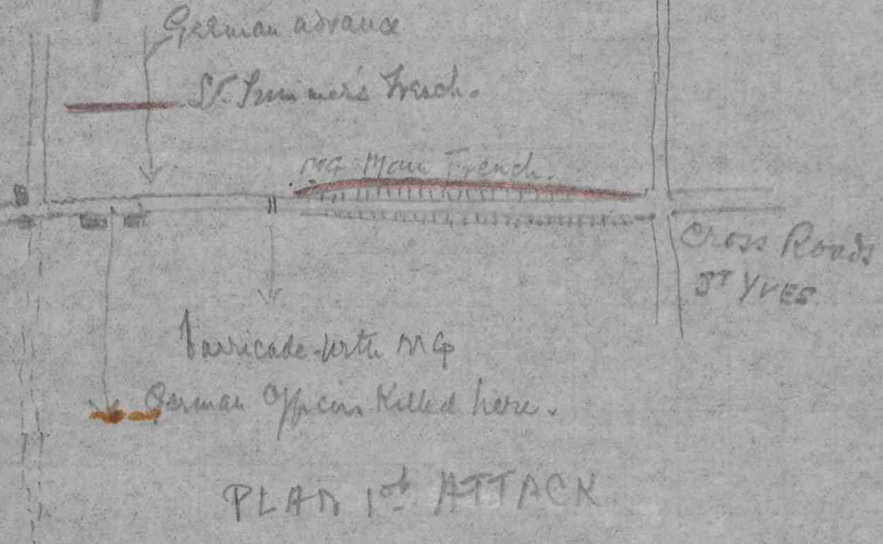 German advance
Lt. Trench.
MG Main Trench.
Cross Roads
ST YVES
barricade with MG
German Officers Killed here.
PLAN 1st ATTACK